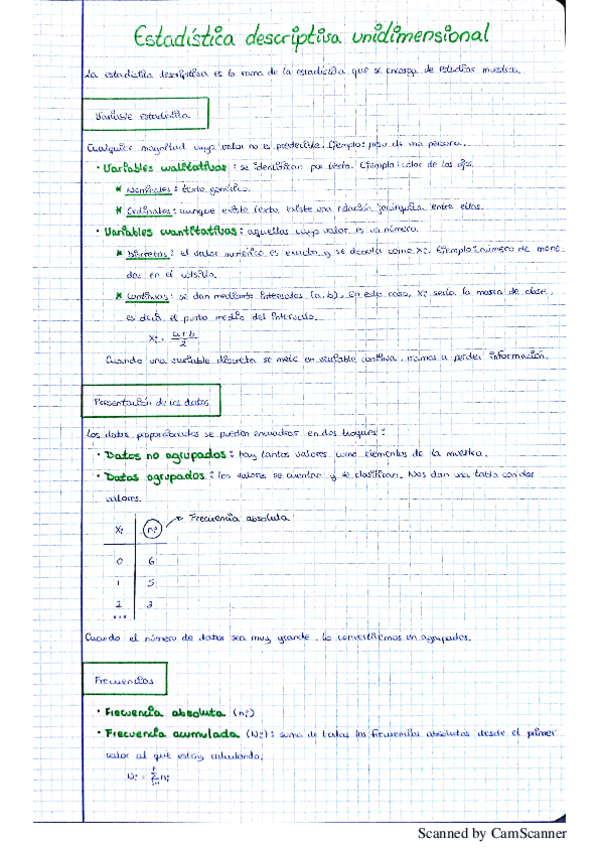 Estadística descriptiva unidimensional
La estadística descriptiva es la rama de la estadística que se encarga de estudiar muestras.
Variable estadística
Cualquier magnitud cuyo valor no es predecible. Ejemplo: peso de una persona.
• Variables cualitativas: se identifican por texto. Ejemplo: color de los ojos.
* Nominales: texto genérico.
* Ordinales: aunque existe texto, existe una relación jerárquica entre ellas.
• Variables cuantitativas: aquellas cuyo valor es un número.
* Discretas: el valor numérico es exacto y se denota como xi. Ejemplo: número de mone-
das en el bolsillo.
* Continuas: se dan mediante intervalos (a,b), en este caso, xi sería la marca de clase,
es decir, el punto medio del intervalo.
xi = a+b/2
Cuando una variable discreta se mete en variable continua, vamos a perder información.
Presentación de los datos
Los datos proporcionados se pueden encuadrar en dos bloques:
• Datos no agrupados: hay tantos valores como elementos de la muestra.
• Datos agrupados: los valores se cuentan y se clasifican. Nos dan una tabla con dos
valores.
xi ni → Frecuencia absoluta
0 6
1 5
2 3
...
Cuando el número de datos sea muy grande, lo convertiremos en agrupados.
Frecuencias
• Frecuencia absoluta (ni)
• Frecuencia acumulada (Ni): suma de todas las frecuencias absolutas desde el primer
valor al que estoy calculando.
Scanned by CamScanner